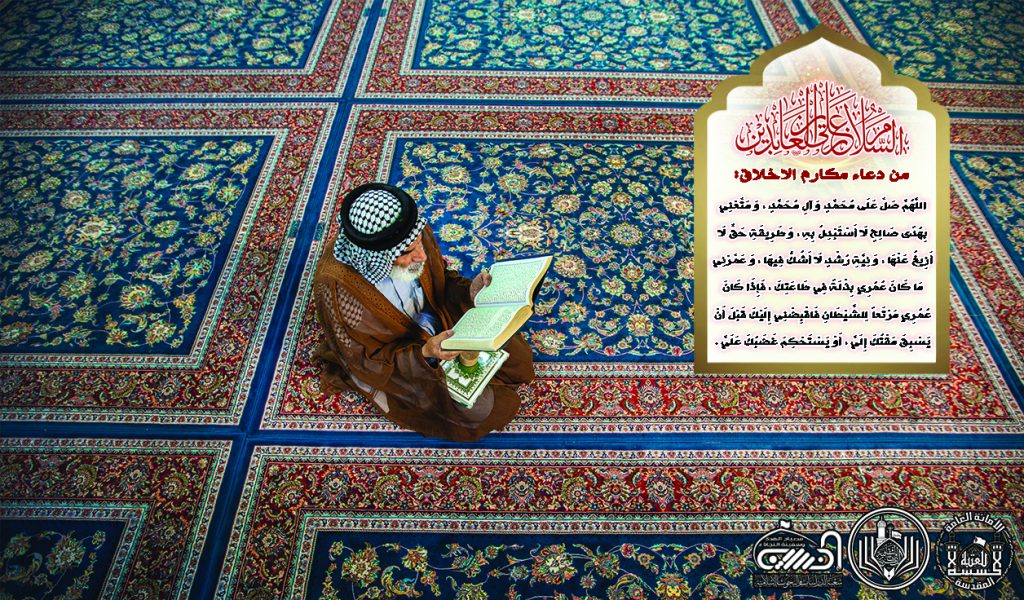 السلام على زين العابدين
من دعاء مكارم الاخلاق:
اللَّهُمَّ صَلِّ عَلَى مُحَمَّدٍ وَآلِ مُحَمَّدٍ ، وَ مَتِّعْنِي
بِهُدًى صَالِحٍ لَا أَسْتَبْدِلُ بِهِ، وَ طَرِيقَةِ حَقٍّ لَا
أَزِيغُ عَنْهَا ، وَ نِيَّةِ رُشْدٍ لَا أَشُكُّ فِيهَا ، وَ عَمِّرْنِي
مَا كَانَ عُمُرِي بِذْلَةً فِي طَاعَتِكَ ، فَإِذَا كَانَ
عُمُرِي مَرْتَعاً لِلشَّيْطَانِ فَاقْبِضْنِي إِلَيْكَ قَبْلَ أَنْ
يَسْبِقَ مَقْتُكَ إِلَيَّ ، أَوْ يَسْتَحْكِمَ غَضَبُكَ عَلَيَّ .
الامانة العامة
للعتبة
الحسينية
المقدسة